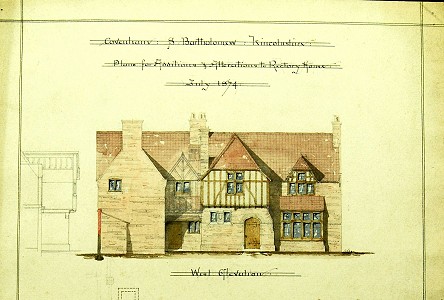 Covenham : S. Bartholomew : Lincolnshire :
Plans for Additions & Alterations to Rectory House
July 1874.
West Elevation :